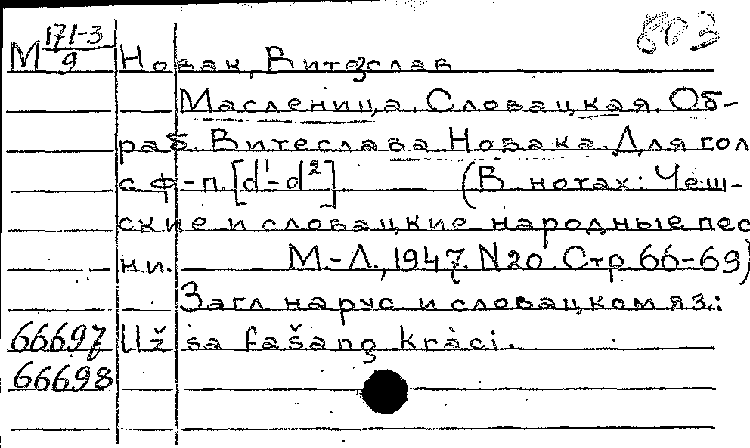 803
М 171-3/9 Новак, Витезслав
Масленица. Словацкая. Об-
раб. Витеслава Новака. Для гол
с ф-п. [d¹-d²] (В нотах: Чеш-
ские и словацкие народные пес
ни. М.-Л., 1947. N20 Стр 66-69)
Загл на рус и словацком яз.:
66697 Už sa fašang kráci.
66698